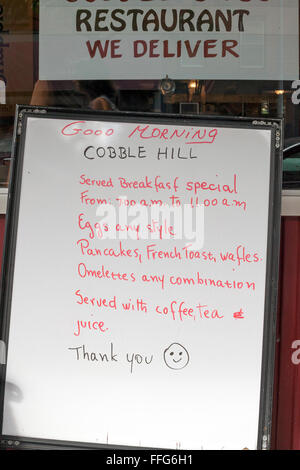 RESTAURANT
WE DELIVER
Good Morning
COBBLE HILL
Served Breakfast special
From 7:00 a.m to 11:00 a.m
Eggs any style
Pancakes, French Toast, wafles.
Omelettes any combination
Served with coffee, tea &
juice.
Thank you
alamy
Image ID: FFG6H1
www.alamy.com